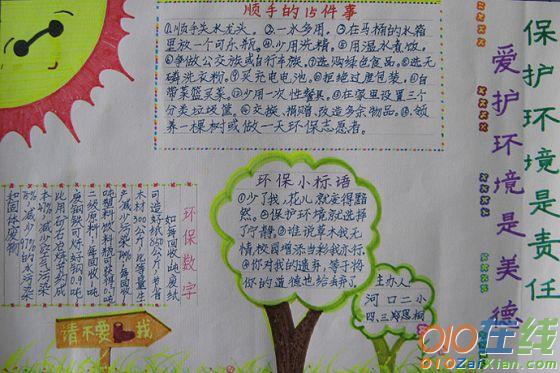 顺手的15件事
①顺手关水龙头。②一水多用。③在马桶的水箱
里放一个可乐瓶。④少用洗精。⑤用温水煮饭。
⑥争做公交族或自行车族。⑦选购绿色食品。⑧选无
磷洗衣粉。⑨买充电电池。⑩拒绝过度包装。⑪自
带菜篮买菜。⑫少用一次性餐具。⑬在家里设置三个
分类垃圾筐。⑭交换、捐赠、改造多余物品。⑮领
养一棵树或做一天环保志愿者。
保护环境是责任
爱护环境是美德
环保小标语
①少了我，花儿就变得黯
然。②保护环境就选择
了宁静。③谁说草木我无
情校园增添当彩我亦行。
④你对我的遗弃，等于将
你的道德也给丢弃了
环保数字
如每回收1吨废纸
可造好纸850公斤，节省
木材300公斤，比等量生
产减少污染74%；每回收1
吨塑料饮料瓶可获得0.7吨
二级原料；每回收1吨
废钢铁可炼好钢0.9吨，
比用矿石冶炼节约成
本47%，减少空气污染
75%，减少97%的水污染
和固体废物。
主办人
河口二小
四、三郑思桐
请不要
我
010在线
010ZaiXian.com